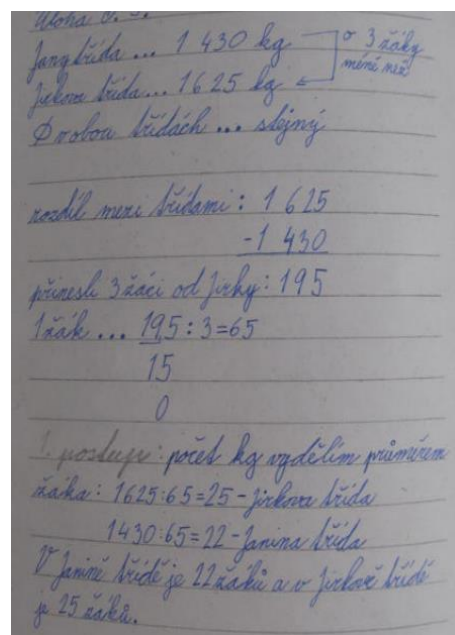 Úloha č. 3.
Jany třída ... 1 430 kg o 3 žáky
méně než
Jirkova třída ... 1625 kg
Φ v obou třídách ... stejný
rozdíl mezi třídami : 1 625
-1 430
přinesli 3 žáci od Jirky: 195
1 žák ... 195 : 3=65
15
0
1. postup: počet kg vydělím průměrem
žáka: 1625:65=25 - Jirkova třída
1430:65=22 - Janina třída
V Janině třídě je 22 žáků a v Jirkově třídě
je 25 žáků.